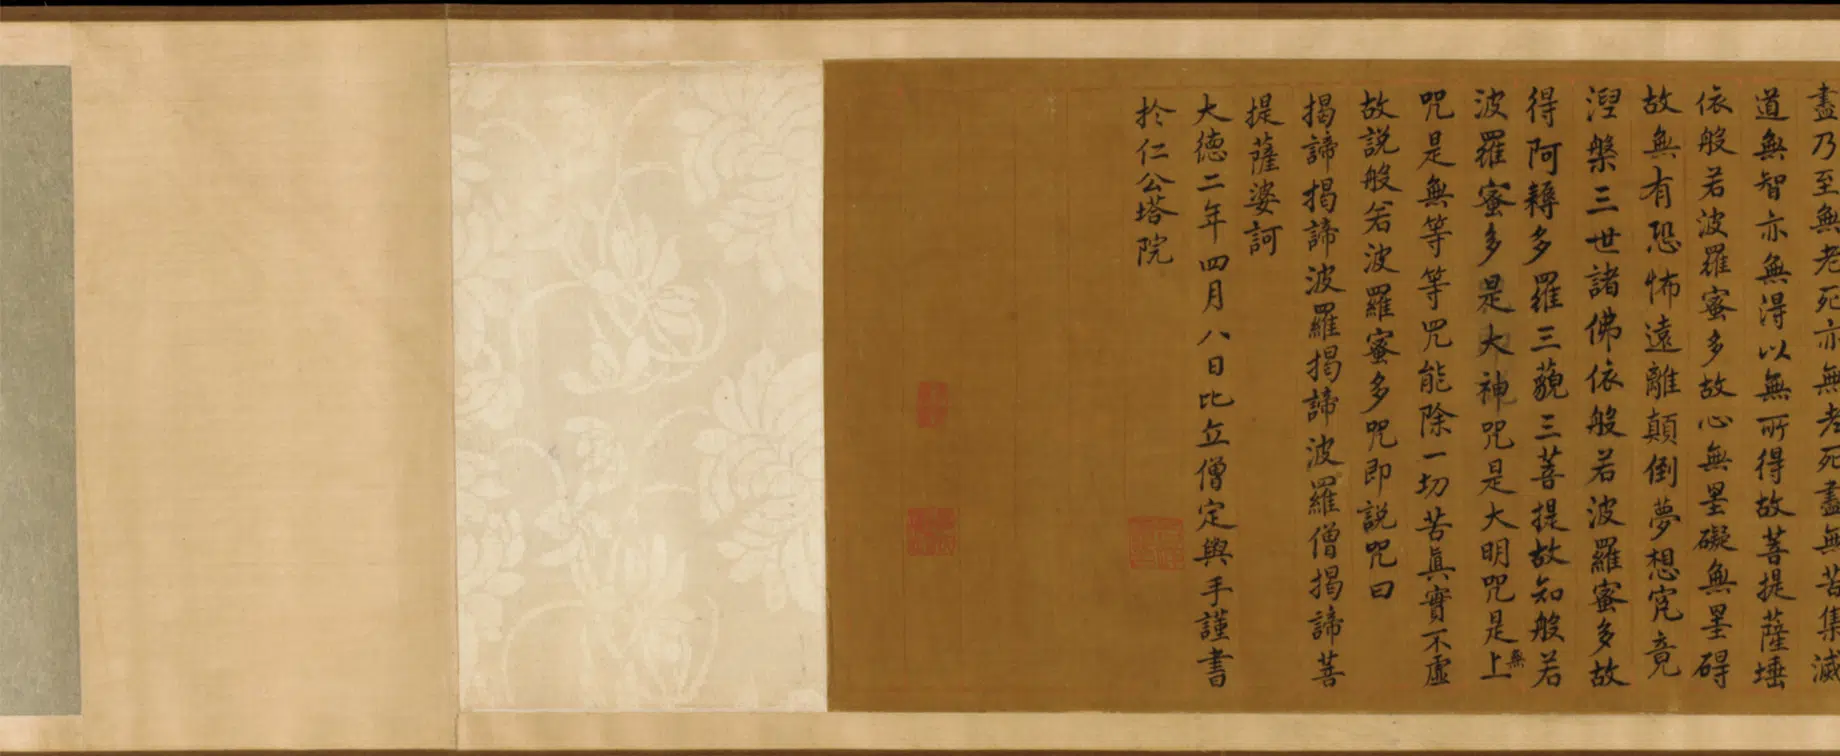 盡乃至無老死亦無老死盡無苦集滅
道無智亦無得以無所得故菩提薩埵
依般若波羅蜜多故心無罣礙無罣碍
故無有恐怖遠離顛倒夢想究竟
涅槃三世諸佛依般若波羅蜜多故
得阿耨多羅三藐三菩提故知般若
波羅蜜多是大神咒是大明咒是無上
咒是無等等咒能除一切苦真實不虛
故說般若波羅蜜多咒即說咒曰
揭諦揭諦波羅揭諦波羅僧揭諦菩
提薩婆訶
大德二年四月八日比丘僧定與手謹書
於仁公塔院